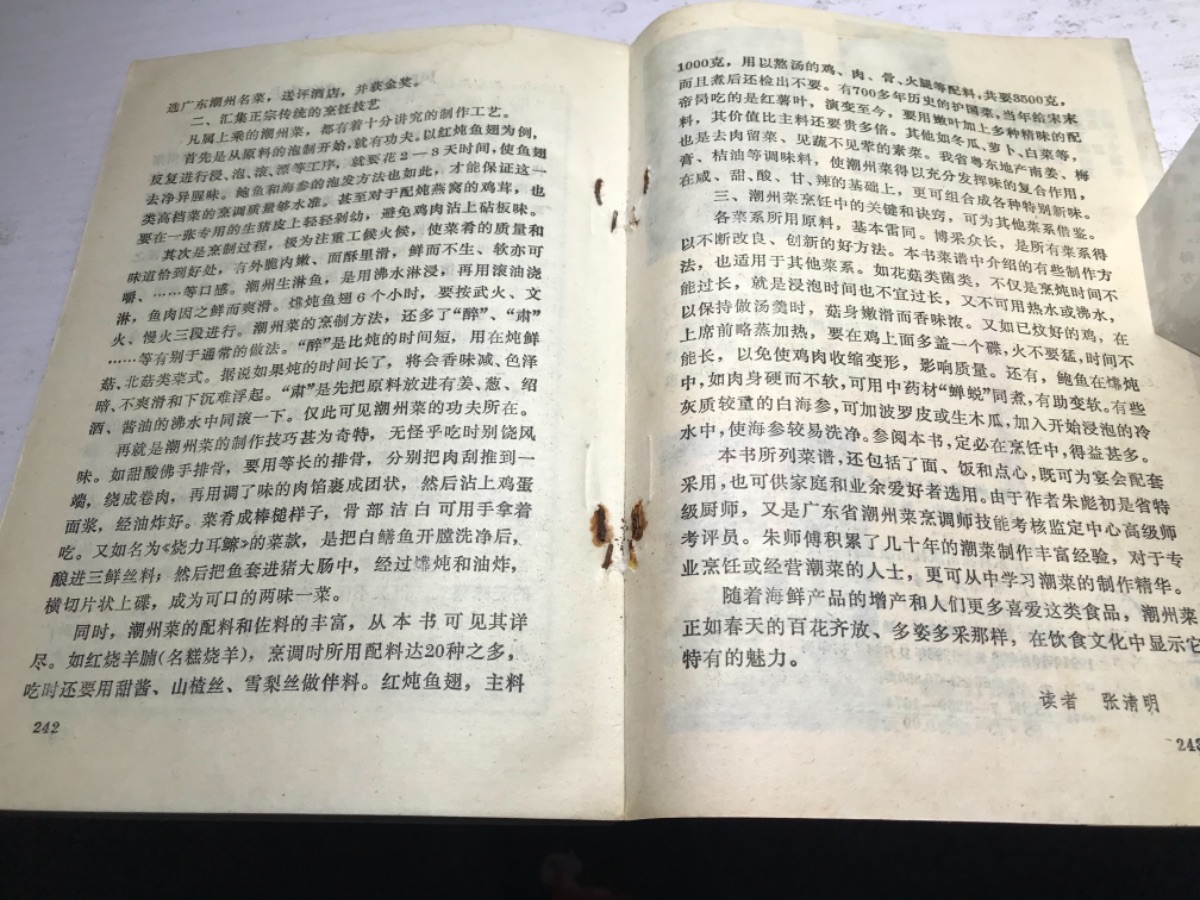 选广东潮州名菜，送评酒店，并获金奖。
二、汇集正宗传统的烹饪技艺
凡属上乘的潮州菜，都有着十分讲究的制作工艺。
首先是从原料的泡制开始，就有功夫。以红炖鱼翅为例，
反复进行浸、泡、滚、漂等工序，就要花2－3天时间，使鱼翅
去净异腥味。鲍鱼和海参的泡发方法也如此，才能保证这一
类高档菜的烹调质量够水准。甚至对于配炖燕窝的鸡茸，也
要在一张专用的生猪皮上轻轻剁幼，避免鸡肉沾上砧板味。
其次是烹制过程，极为注重工候火候，使菜肴的质量和
味道恰到好处，有外脆内嫩、面酥里滑，鲜而不生、软亦可
嚼、……等口感。潮州生淋鱼，是用沸水淋浸，再用滚油浇
淋，鱼肉因之鲜而爽滑。㸆炖鱼翅6个小时，要按武火、文
火、慢火三段进行。潮州菜的烹制方法，还多了“醉”、“肃”
……等有别于通常的做法。“醉”是比炖的时间短，用在炖鲜
菇、北菇类菜式。据说如果炖的时间长了，将会香味减、色泽
暗、不爽滑和下沉难浮起。“肃”是先把原料放进有姜、葱、绍
酒、酱油的沸水中同滚一下。仅此可见潮州菜的功夫所在。
再就是潮州菜的制作技巧甚为奇特，无怪乎吃时别饶风
味。如甜酸佛手排骨，要用等长的排骨，分别把肉刮推到一
端，绕成卷肉，再用调了味的肉馅裹成团状，然后沾上鸡蛋
面浆，经油炸好。菜肴成棒槌样子，骨部洁白可用手拿着
吃。又如名为《烧力耳鳜》的菜款，是把白鳝鱼开膛洗净后，
酿进三鲜丝料；然后把鱼套进猪大肠中，经过㸆炖和油炸，
横切片状上碟，成为可口的两味一菜。
同时，潮州菜的配料和佐料的丰富，从本书可见其详
尽。如红烧羊腩(名糕烧羊)，烹调时所用配料达20种之多，
吃时还要用甜酱、山楂丝、雪梨丝做伴料。红炖鱼翅，主料
242
1000克，用以熬汤的鸡、肉、骨、火腿等配料，共要3500克，
而且煮后还检出不要。有700多年历史的护国菜，当年给宋末
帝昺吃的是红薯叶，演变至今，要用嫩叶加上多种精味的配
料，其价值比主料还要贵多倍。其他如冬瓜、萝卜、白菜等，
也是去肉留菜、见蔬不见荤的素菜。我省粤东地产南姜、梅
膏、桔油等调味料，使潮州菜得以充分发挥味的复合作用，
在咸、甜、酸、甘、辣的基础上，更可组合成各种特别新味。
三、潮州菜烹饪中的关键和诀窍，可为其他菜系借鉴。
各菜系所用原料，基本雷同。博采众长，是所有菜系得
以不断改良、创新的好方法。本书菜谱中介绍的有些制作方
法，也适用于其他菜系。如花菇类菌类，不仅是烹炖时间不
能过长，就是浸泡时间也不宜过长，又不可用热水或沸水，
以保持做汤羹时，菇身嫩滑而香味浓。又如已炆好的鸡，在
上席前略蒸加热，要在鸡上面多盖一个碟，火不要猛，时间不
能长，以免使鸡肉收缩变形，影响质量。还有，鲍鱼在㸆炖
中，如肉身硬而不软，可用中药材“蝉蜕”同煮，有助变软。有些
灰质较重的白海参，可加波罗皮或生木瓜，加入开始浸泡的冷
水中，使海参较易洗净。参阅本书，定必在烹饪中，得益甚多。
本书所列菜谱，还包括了面、饭和点心，既可为宴会配套
采用，也可供家庭和业余爱好者选用。由于作者朱彪初是省特
级厨师，又是广东省潮州菜烹调师技能考核监定中心高级师
考评员。朱师傅积累了几十年的潮菜制作丰富经验，对于专
业烹饪或经营潮菜的人士，更可从中学习潮菜的制作精华。
随着海鲜产品的增产和人们更多喜爱这类食品，潮州菜
正如春天的百花齐放、多姿多采那样，在饮食文化中显示它
特有的魅力。
读者 张清明
243